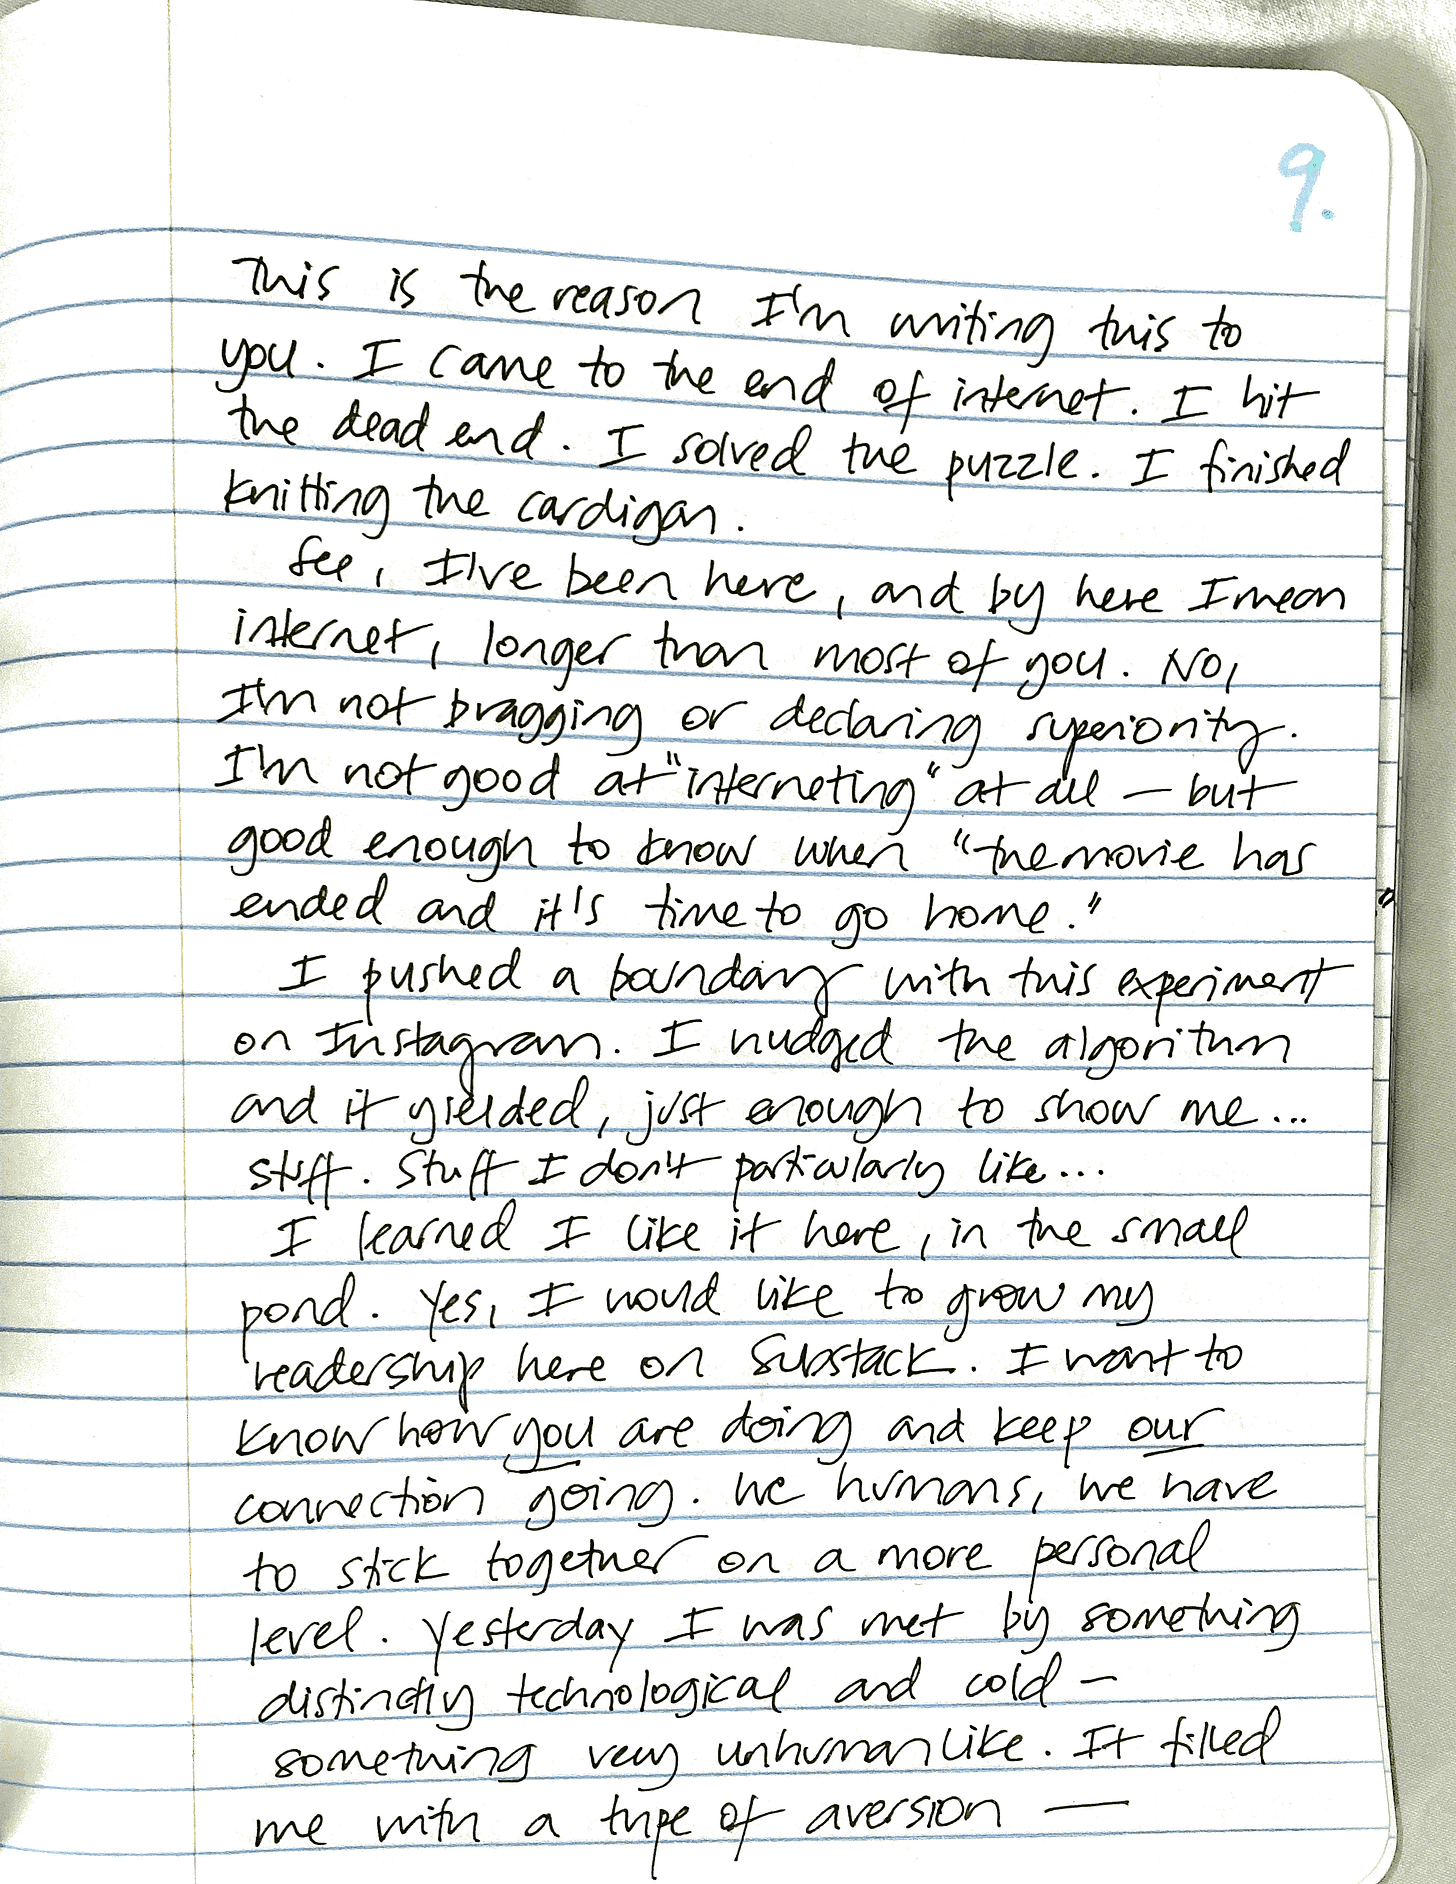 9.
This is the reason I'm writing this to
you. I came to the end of internet. I hit
the dead end. I solved the puzzle. I finished
knitting the cardigan.
See, I've been here, and by here I mean
internet, longer than most of you. No,
I'm not bragging or declaring superiority.
I'm not good at "interneting" at all – but
good enough to know when "the movie has
ended and it's time to go home."
I pushed a boundary with this experiment
on Instagram. I nudged the algorithm
and it yielded, just enough to show me...
stuff. Stuff I don't particularly like...
I learned I like it here, in the small
pond. Yes, I would like to grow my
readership here on Substack. I want to
know how you are doing and keep our
connection going. We humans, we have
to stick together on a more personal
level. Yesterday I was met by something
distinctly technological and cold –
something very unhumanlike. It filled
me with a type of aversion —